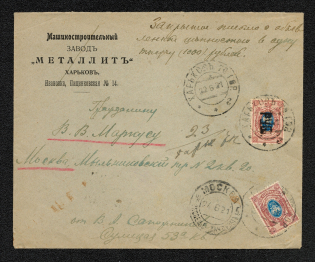 Машиностроительный
ЗАВОДЪ
„МЕТАЛЛИТЪ"
ХАРЬКОВЪ,
Ивановка, Пащенковская № 14.
Закрытое письмо с объяв
ленной ценностью в одну
тысячу (1000) рублей.
ХАРЬКОВЪ
Гражданину
В. В. Маркусу
23
Москва, Мыльниковский пр № 2 кв. 20.
МОСКВА
от В.
Сумская 59